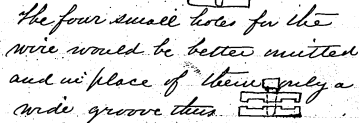 The four small holes for the
wire would be better omitted
and in place of them only a
wide groove thus